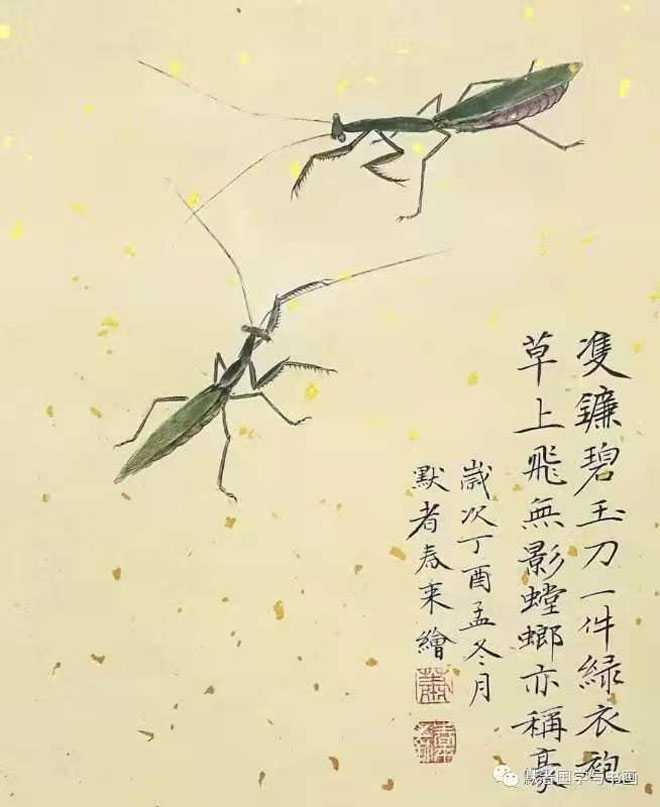 雙鐮碧玉刀一件緑衣袍
草上飛無影螳螂亦稱豪
歲次丁酉孟冬月
默者春来繪
蕭
默者国学与书画